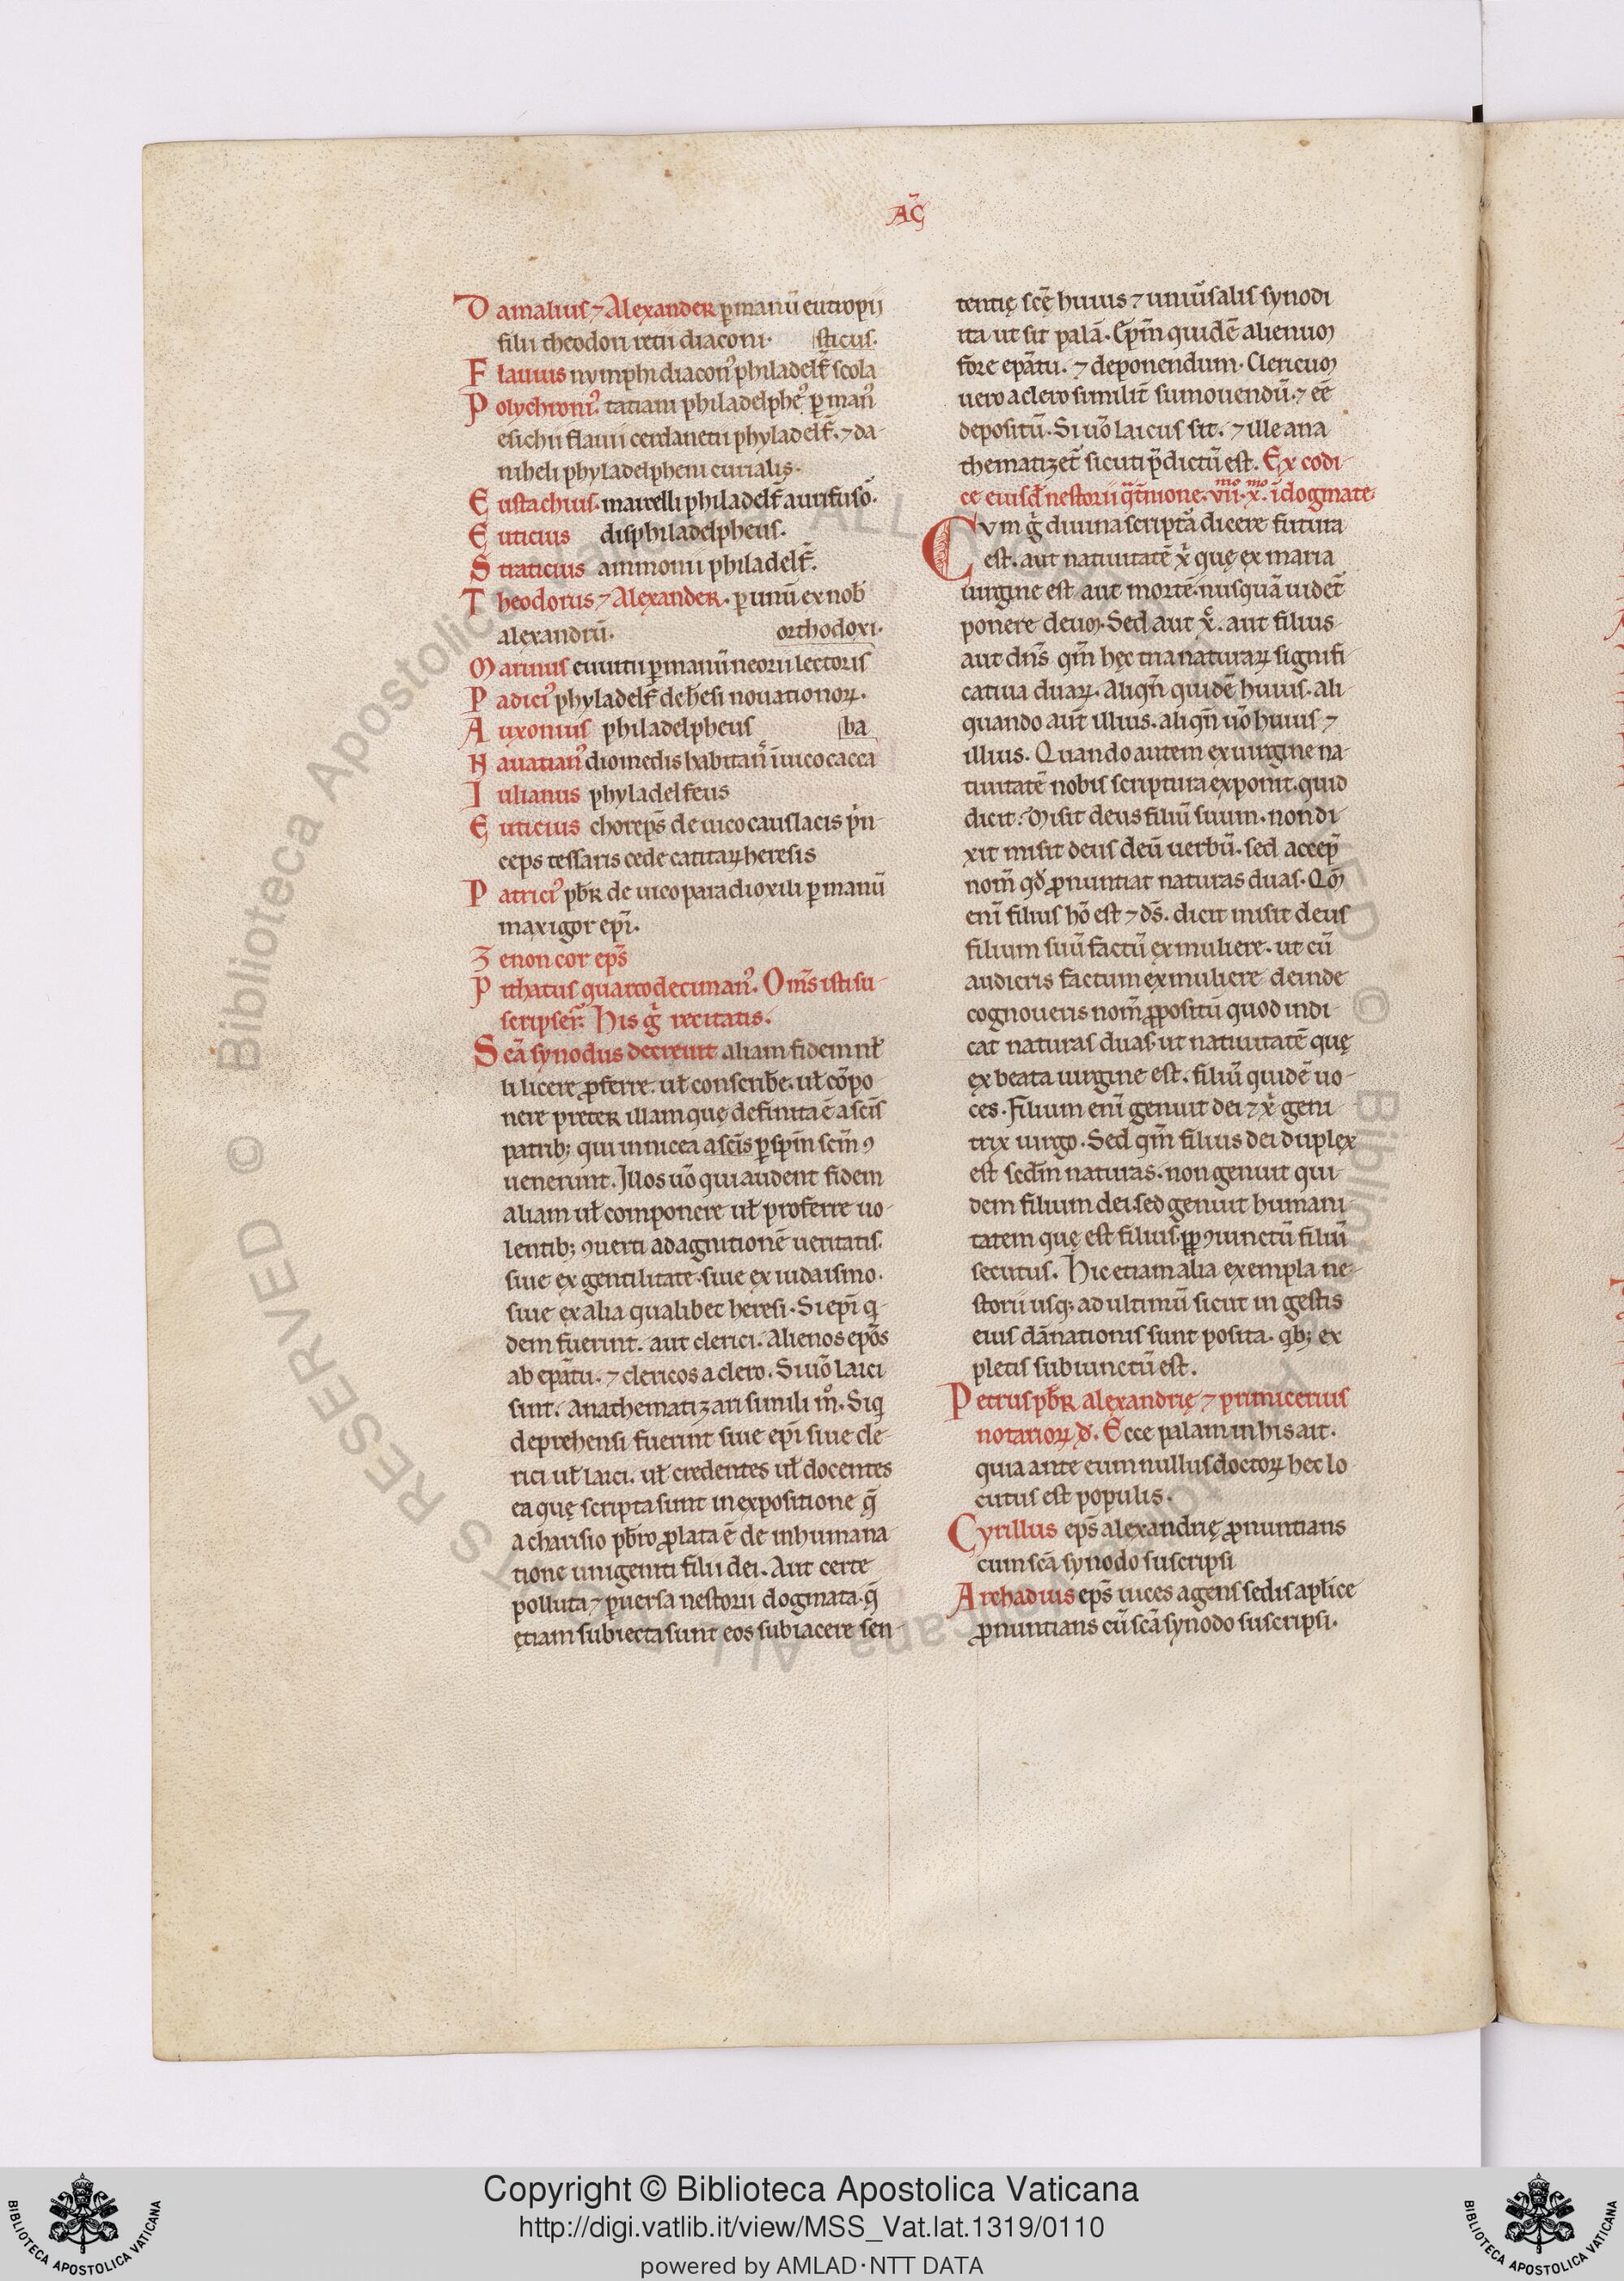 AC̄
Damalius ⁊ Alexander ꝑ manū eutropij
filii theodori uetii diaconi· sticus.
Flauius nymphi diacon᷒ philadelf̄ scola
Polychroni᷒ tatiani philadelphe᷒ ꝑ man᷒
esichii flauii cerdanetii phyladelf̄. ⁊ da-
niheli phyladelpheni curialis·
Eustachius· marcelli philadelf̄ aurifuso᷒.
Euticius disphiladelpheus.
Straticius ammonii philadelf̄.
Theodorus ⁊ Alexander· ꝑ unū ex nob̄
alexandrū. orthodoxi.
Marinus ꝑ manū neorii lectoris
Padici᷒ phyladelf̄ de h̄esi nouationoꝝ.
Auxonius philadelpheus ba
Nauatian᷒ diomedis habitan᷒ ī uico cacca
Iulianus phyladelfeus
Euticius chorep̄s de uico causlacis pⁱn-
ceps tessaris cede catitaꝝ heresis
Patrici᷒ pb̄R de uico paradioxili ꝑ manū
maxigor ep̄i.
Zenon cor ep̄s
Pithatus quartodeciman᷒. Om̄s isti su-
scripser̄. His g̊ recitatis.
Sc̄a synodus decreuit aliam fidem nł-
li licere ꝓferre. uł conscribe. uł cōpo
nere preter illam quę definita ē a sc̄is
patrib; qui in nicea a sc̄is ꝑ sp̄m sc̄m ꝯ
uenerunt. Illos uō qui audent fidem
aliam uł componere uł proferre uo-
lentib; ꝯuerti ad agnitionē ueritatis.
siue ex gentilitate. siue ex iudaismo.
siue ex alia qualibet heresi. Si ep̄i q-
dem fuerint. aut clerici. Alienos ep̄os
ab ep̄atu. ⁊ clericos a clero. Si uō laici
sint. Anathematizari simili m̊. Siq
deprehensi fuerint siue ep̄i siue cle-
rici uł laici. uł credentes uł docentes
ea quę scripta sunt in expositione q̄
a charisio pb̄ro ꝓlata ē de inhumana
tione unigeniti filii dei. Aut certe
polluta ⁊ ꝑuersa nestorii dogmata. q̄
ętiam subiecta sunt eos subiacere sen-
tentię sc̄ę huius ⁊ uniūsalis synodi
ita ut sit palā. Ep̄m quidē alienum
fore ep̄atu. ⁊ deponendum. Clericum
uero a clero similit̄ sumouendū. ⁊ eē
depositū. Si uō laicus sit. ⁊ ille ana
thematizet̄ sicuti p̄dictū est. Ex codi-
ce eiusd̄ nestorii q̄t̄nione. vii.mo x.mo ī dogmate.
Cvm g̊ diuina scriptᷓa dicere futura
est. aut natiuitatē x̄ᷤ quę ex maria
uirgine est aut mortē. nusquā uidet̄
ponere deum. Sed aut x̄. aut filius-
aut dn̄s qm̄ hęc tria naturaꝝ signifi
catiua duaꝝ. Aliqn̄ quidē huius. ali-
quando aūt illius. aliqn̄ uō huius ⁊
illius. Quando autem ex uirgine na-
tiuitatē nobis scriptura exponit. quid
dicit? Misit deus filiū suum. non di-
xit misit deus deū uerbū. sed accep̄
nom̄ qd̄ ꝓnuntiat naturas duas. Qm̄
enī filius hō est ⁊ d̄s. dicit misit deus
filium suū factū ex muliere. ut cū
audieris factum ex muliere deinde
cognoueris nom̄ ꝓpositū quod indi-
cat naturas duas. ut natiuitatē quę
ex beata uirgine est. filiū quidē uo-
ces. Filium enī genuit dei ⁊ x̄ᷤ geni-
trix uirgo. Sed qm̄ filius dei duplex
est sedm̄ naturas. non genuit qui-
dem filium dei. sed genuit humani-
tatem quę est filius. ꝓp̄ ꝯiunctū filiū
secutus. Hic etiam alia exempla ne-
storii usq; ad ultimū sicut in gestis
eius dānationis sunt posita. qb; ex
pletis subiunctū est.
Petrus pb̄R alexandrię ⁊ primicerius
notarioꝝ d̄. Ecce palam in his ait.
quia ante eum nullus doctoꝝ hec lo
cutus est populis.
Cyrillus ep̄s alexandrię ꝓnuntians
cum sc̄a synodo suscripsi
Archadius ep̄s uices agens sedis apłice
ꝓnuntians cū sc̄a synodo suscripsi.
Copyright © Biblioteca Apostolica Vaticana
http://digi.vatlib.it/view/MSS_Vat.lat.1319/0110
powered by AMLAD·NTT DATA
BIBLIOTECA APOSTOLICA VATICANA
BIBLIOTECA APOSTOLICA VATICANA